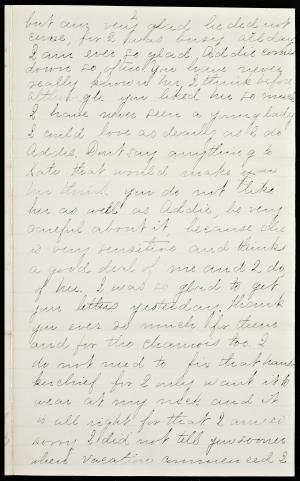 but am very glad he did not
come, for I was busy all day
I am ever so glad, Addie comes
down so often you have never
really known her I think before
although you liked her so much
I have never seen a young lady
I could love as dearly as I do
Addie. Don't say anything to
Kate that would make
her think you do not like
her as well as Addie, be very
careful about it because she
is very sensitive and thinks
a good deal of me and I do
of her. I was so glad to get
your letters yesterday. thank
you ever so much for them
and for the chamois too I
do not need to fix that hand-
kerchief for I only want it to
wear at my neck and it
is all right for that I am so
sorry I did not tell you sooner
when vacation commenced I